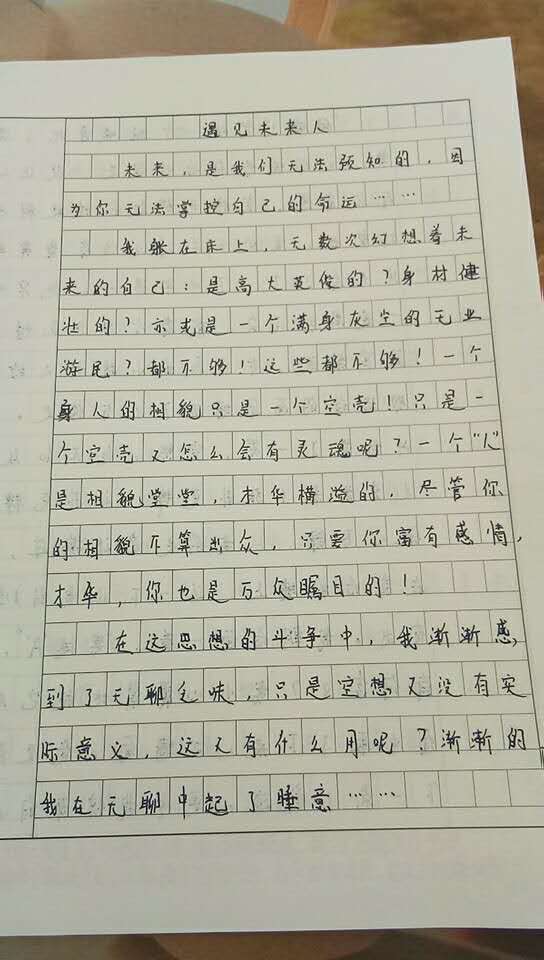 遇见未来人
未来，是我们无法预知的，因
为你无法掌控自己的命运……
我躺在床上，无数次幻想着未
来的自己：是高大英俊的？身材健
壮的？亦或是一个满身灰尘的无业
游民？都不够！这些都不够！一个
人的相貌只是一个空壳！只是一
个空壳又怎么会有灵魂呢？一个“人”
是相貌堂堂，才华横溢的，尽管你
的相貌不算出众，只要你富有感情，
才华，你也是万众瞩目的！
在这思想的斗争中，我渐渐感
到了无聊乏味，只是空想又没有实
际意义，这又有什么用呢？渐渐的
我在无聊中起了睡意……